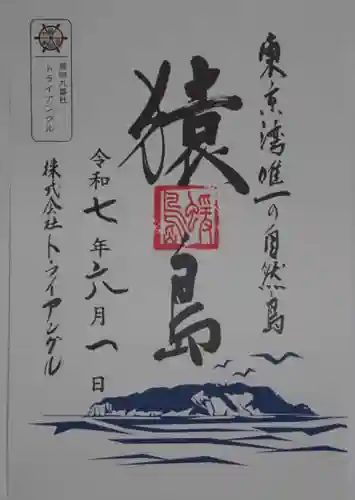 東京湾唯一の自然島
猿島
猿島
令和七年六月一日
株式会社トライアングル
トライアングル